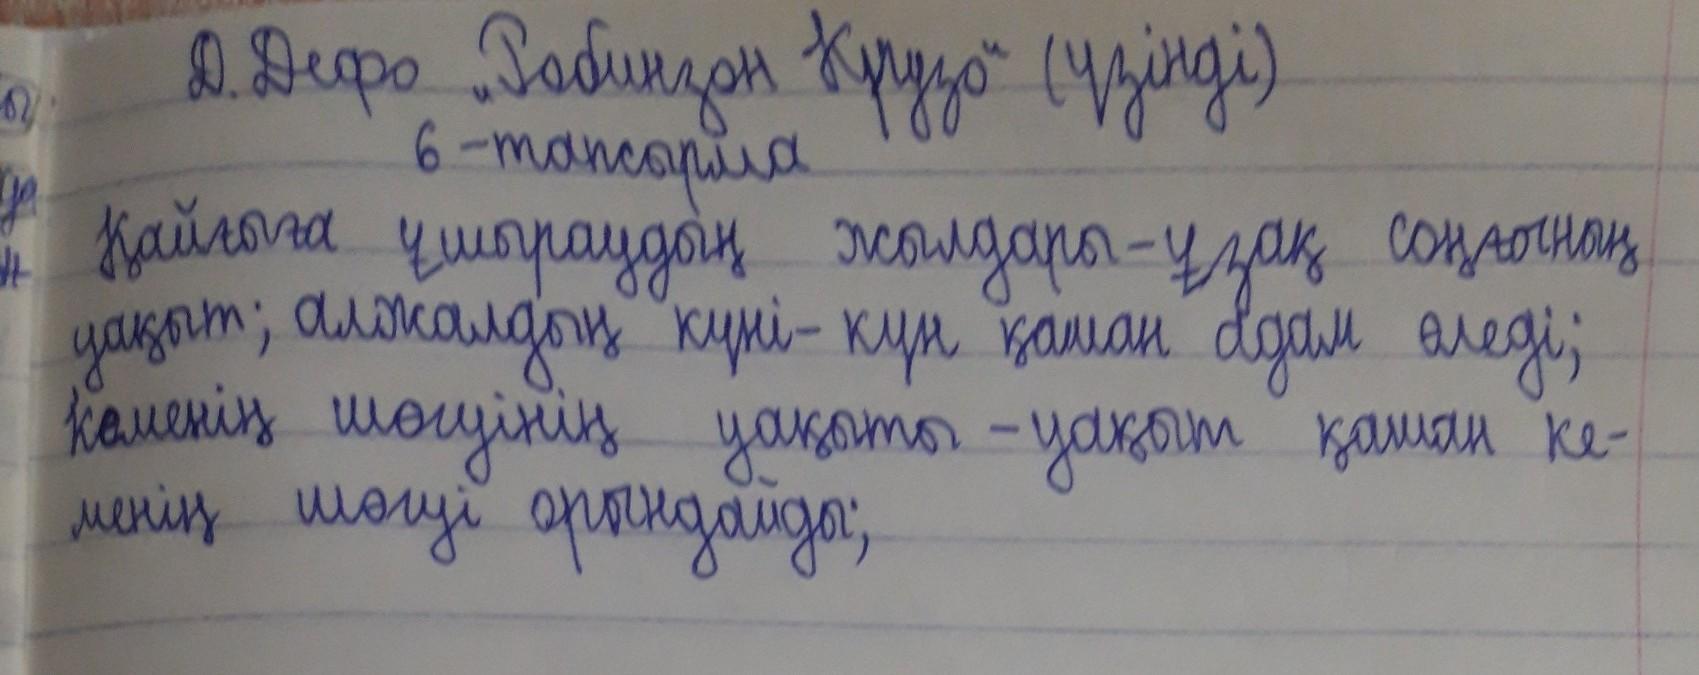 Д. Дефо „Робинзон Крузо“ (үзінді)
6-тапсырма
Қайғыға ұшыраудың жылдары-ұзақ соңғының
уақыт; алжалдың күні-күн қашан адам өледі;
Кеменің шөгуінің уақыты-уақыт қашан ке-
менің шөгуі орындайды;